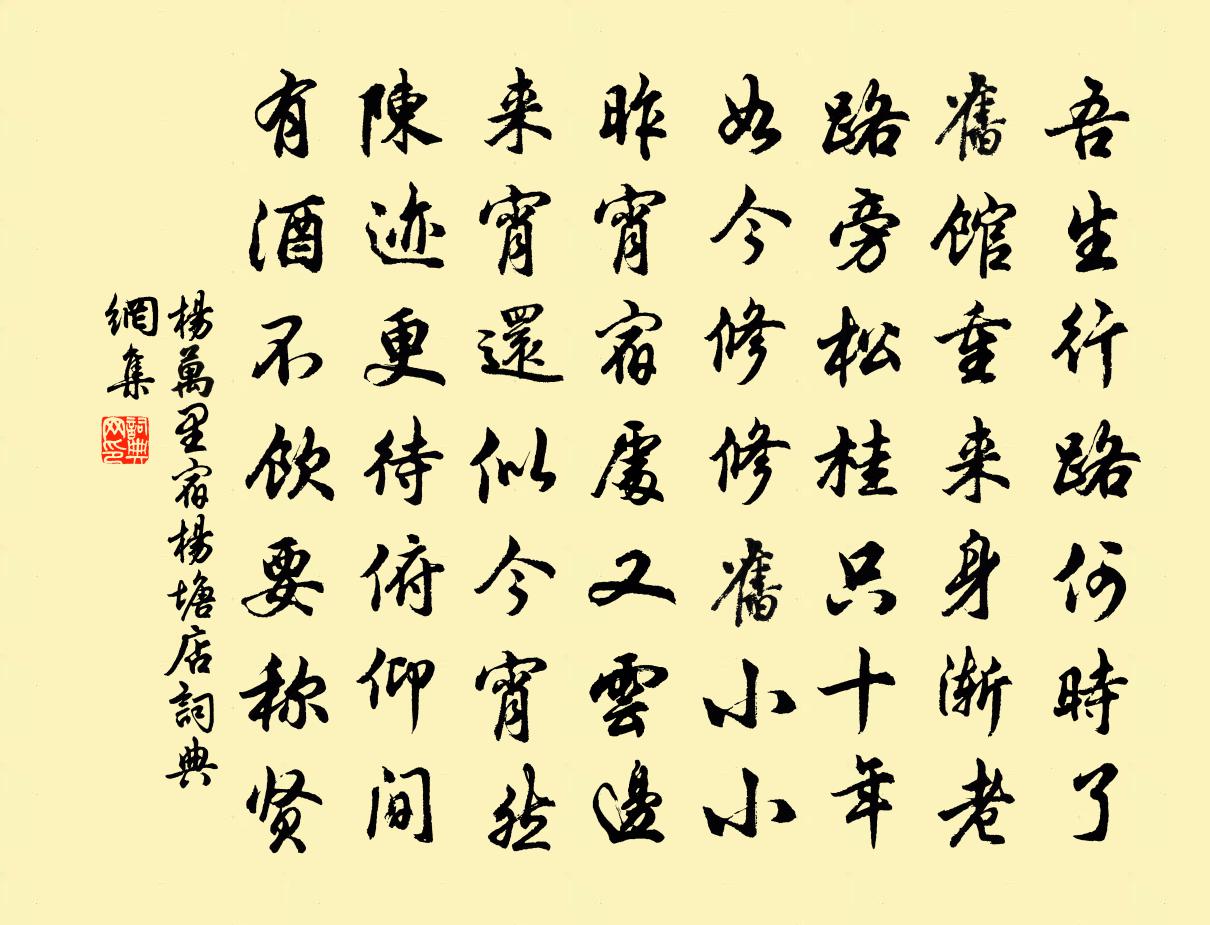 吾生行路何時了
舊館重来身漸老
路旁松桂只十年
如今修修舊小小
昨宵宿處又雲邊
来宵還似今宵然
陳迹更待俯仰间
有酒不飲要称贤
楊萬里宿楊塘店詞典
網集
詞典
网印